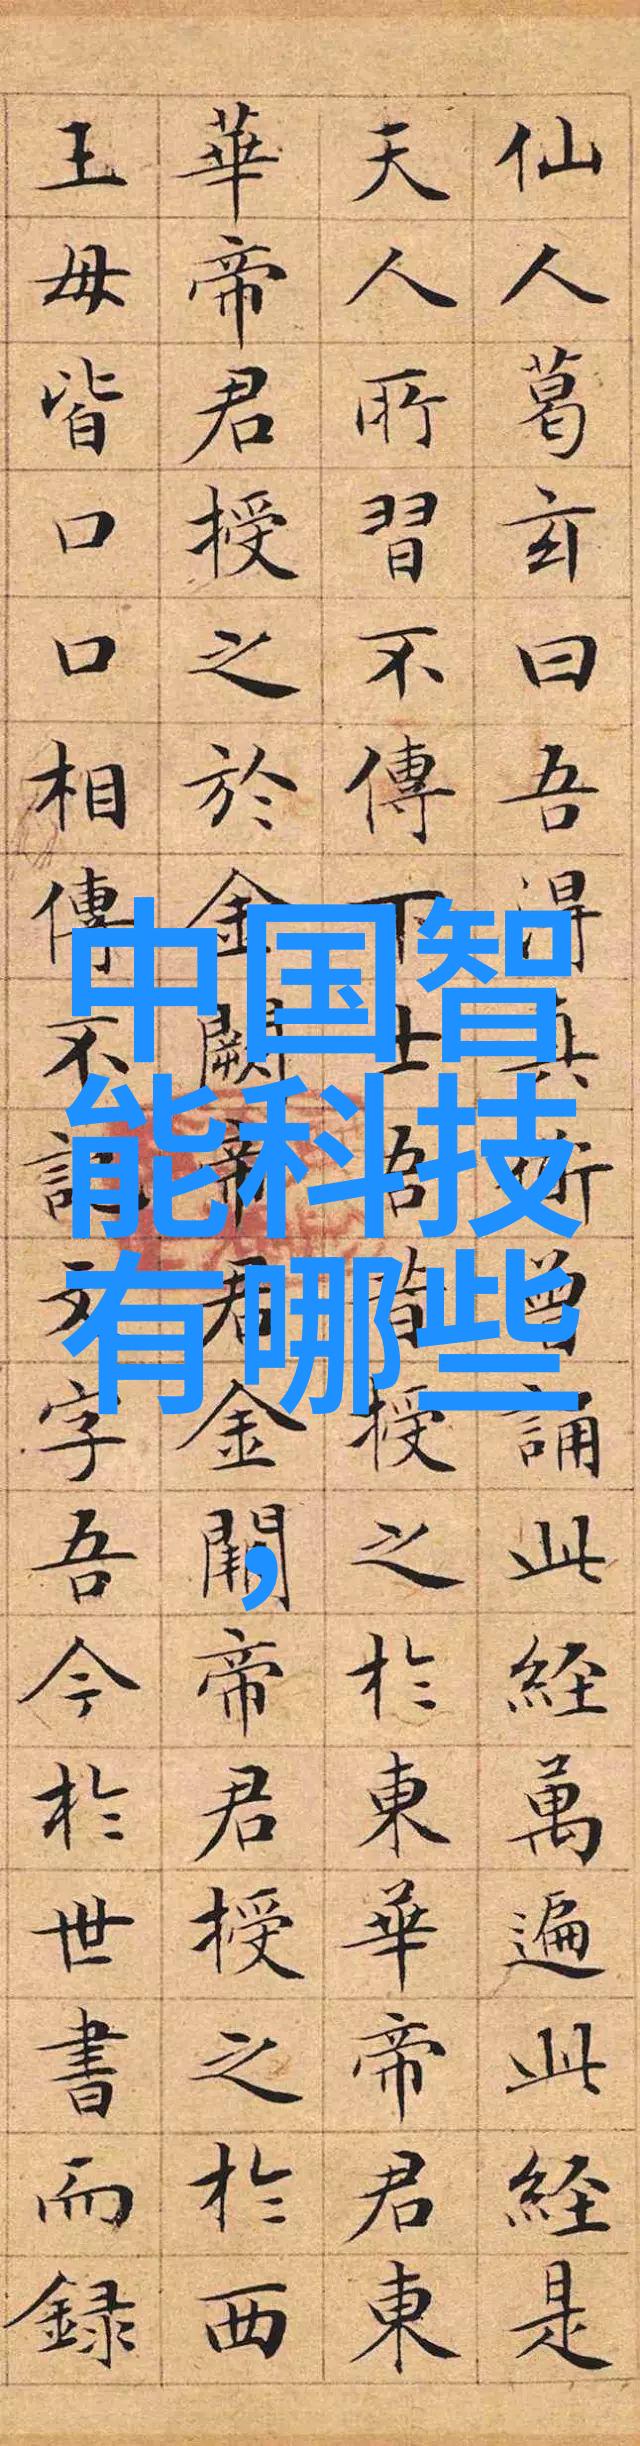 仙人葛玄曰吾得真術曾誦此經萬遍此經是
天人所習不傳下士吾昔授之於東華帝君東
華帝君授之於金闕帝君金闕帝君授之於西
王母皆口口相傳不記文字吾今於世書而録
中国智
能科技
有哪些
,